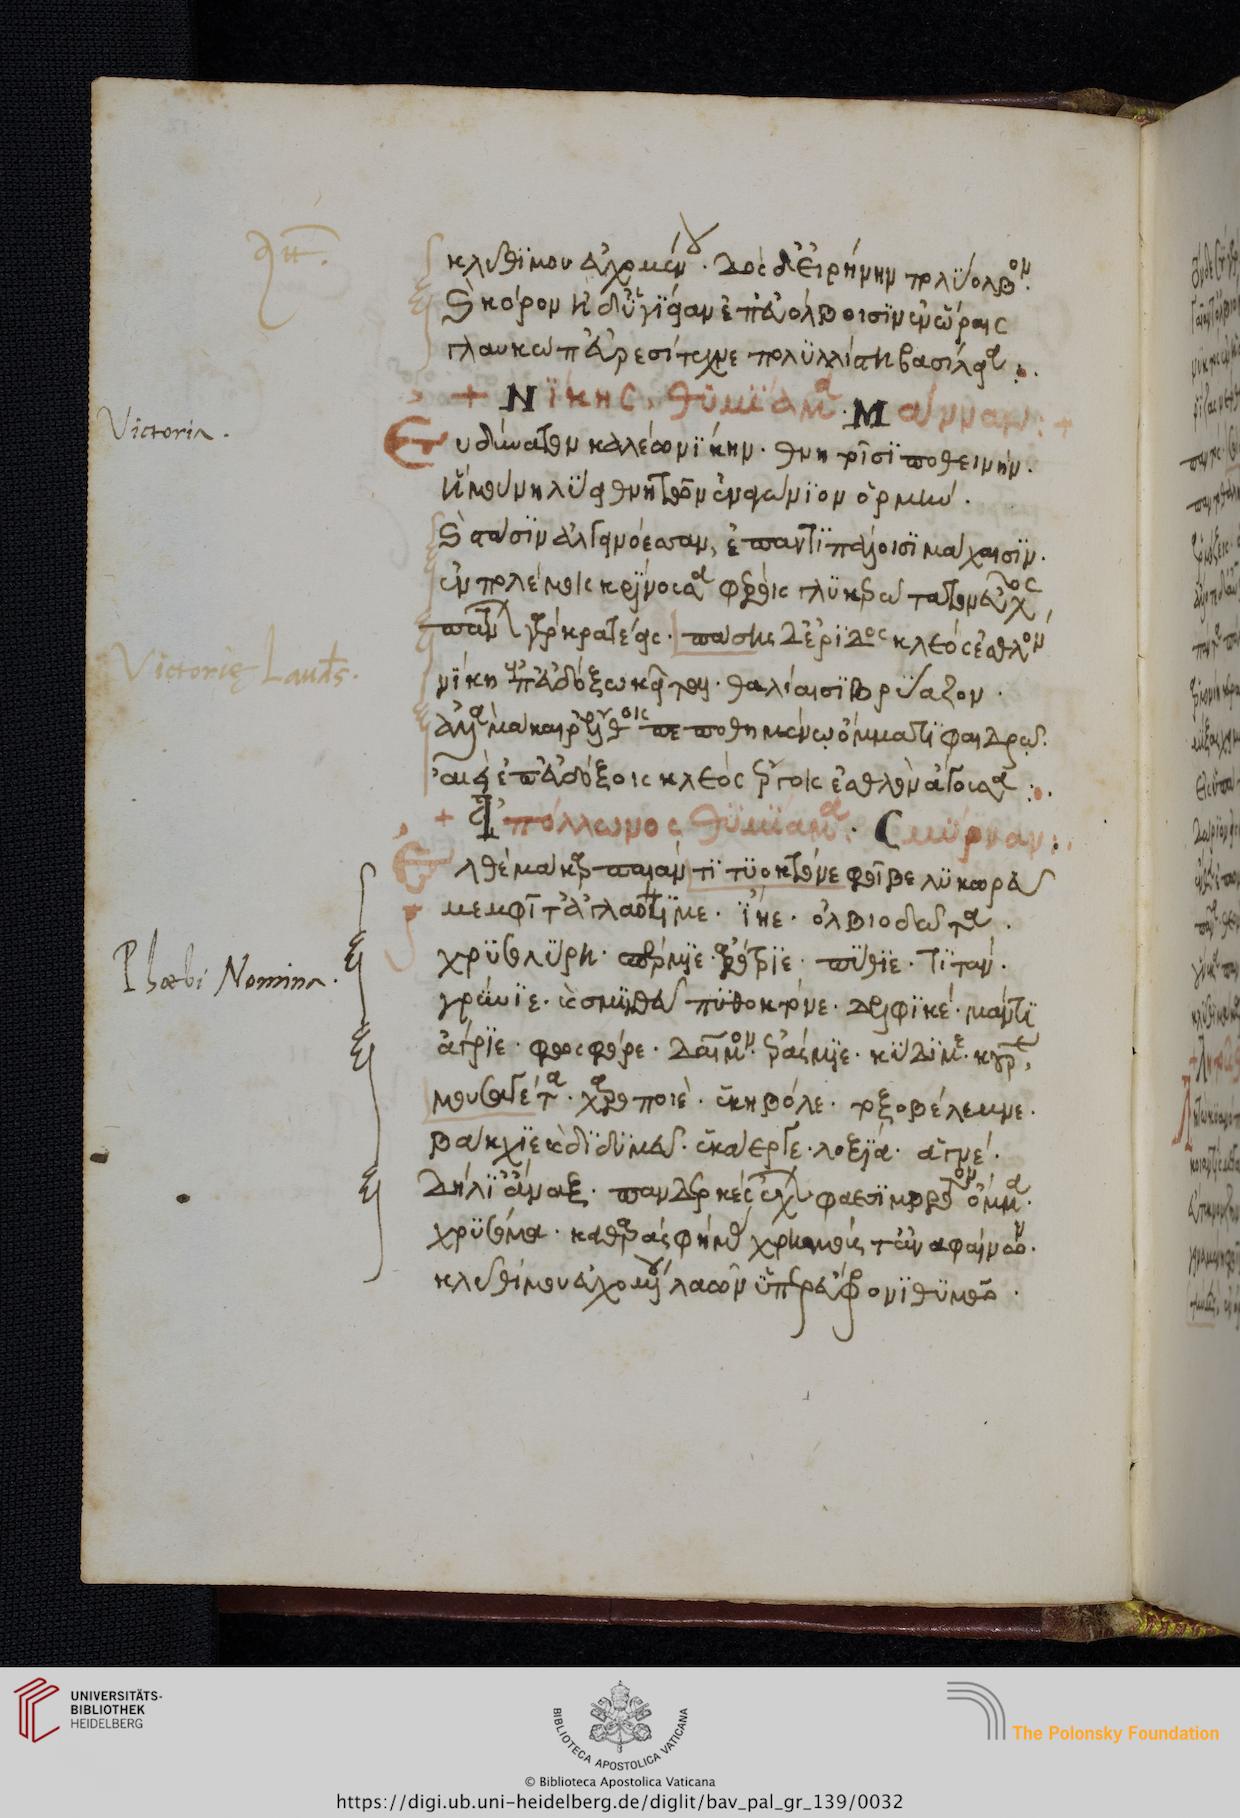 κλῦθί μου εὐχομένου. δὸς δ' εἰρήνην πολύολβον.
καὶ κόρον ἠδ' ὑγίειαν ἐπ' εὐόλβοισιν ἐν ὥραις
+ Νίκης, θυμίαμα. Μάνναν: +
Victoria.
Εὐδύνατον καλέω νίκην. θνητοῖσι ποθεινήν.
ἣ μούνη λύει θνητῶν ἐναγώνιον ὁρμήν.
καὶ στάσιν ἀλγινόεσσαν, ἐπ' ἀντιπάλοισι μάχαισιν.
ἐν πολέμοις κρίνουσα
πάντων γὰρ κρατέεις. πάσης δ' ἔριδος κλέος ἐσθλὸν
Victorię Laudes.
νίκη ἐπ' εὐδόξω κεῖται. θαλίαισι βρυάζον.
ἀλλὰ μάκαιρ' ἔλθοις πεποθημένω ὄμματι φαιδρῷ.
αἰεὶ ἐπ' εὐδόξοις κλέος ἔργοις ἐσθλὸν ἄγουσα :.
+ Ἀπόλλωνος θυμίαμα. Σμύρναν:.
Ἐλθὲ μάκαρ παιὰν τιτυοκτόνε φοῖβε λυκωρεῦ
μεμφῖτ' ἀγλαότιμε. ἰήϊε. ὀλβιοδῶτα.
Phœbi Nomina.
χρυσολύρη. σπέρμιε. ἀρότριε. πύθιε. τιτάν.
γρύνιε. καὶ σμινθεῦ πυθοκτόνε. δελφικέ. μάντι
ἄγριε. φωσφόρε. δαῖμον. ἐράσμιε. κύδιμε. κοῦρε,
μουσαγέτα. χοροποιὲ. ἑκηβόλε. τοξοβέλεμνε.
βάκχιε καὶ διδυμεῦ. ἑκάεργε. λοξία. ἁγνέ.
Δήλι' ἄναξ. πανδερκὲς ἔχων φαεσίμβροτον ὄμμα.
χρυσοκόμα. καθαρὰς φήμας χρησμούς τ' ἀναφαίνων.
κλῦθί μου εὐχομένου λαῶν ὕπερ εὔφρονι θυμῷ.
UNIVERSITÄTS-
BIBLIOTHEK
HEIDELBERG
BIBLIOTECA APOSTOLICA VATICANA
The Polonsky Foundation
© Biblioteca Apostolica Vaticana
https://digi.ub.uni-heidelberg.de/diglit/bav_pal_gr_139/0032